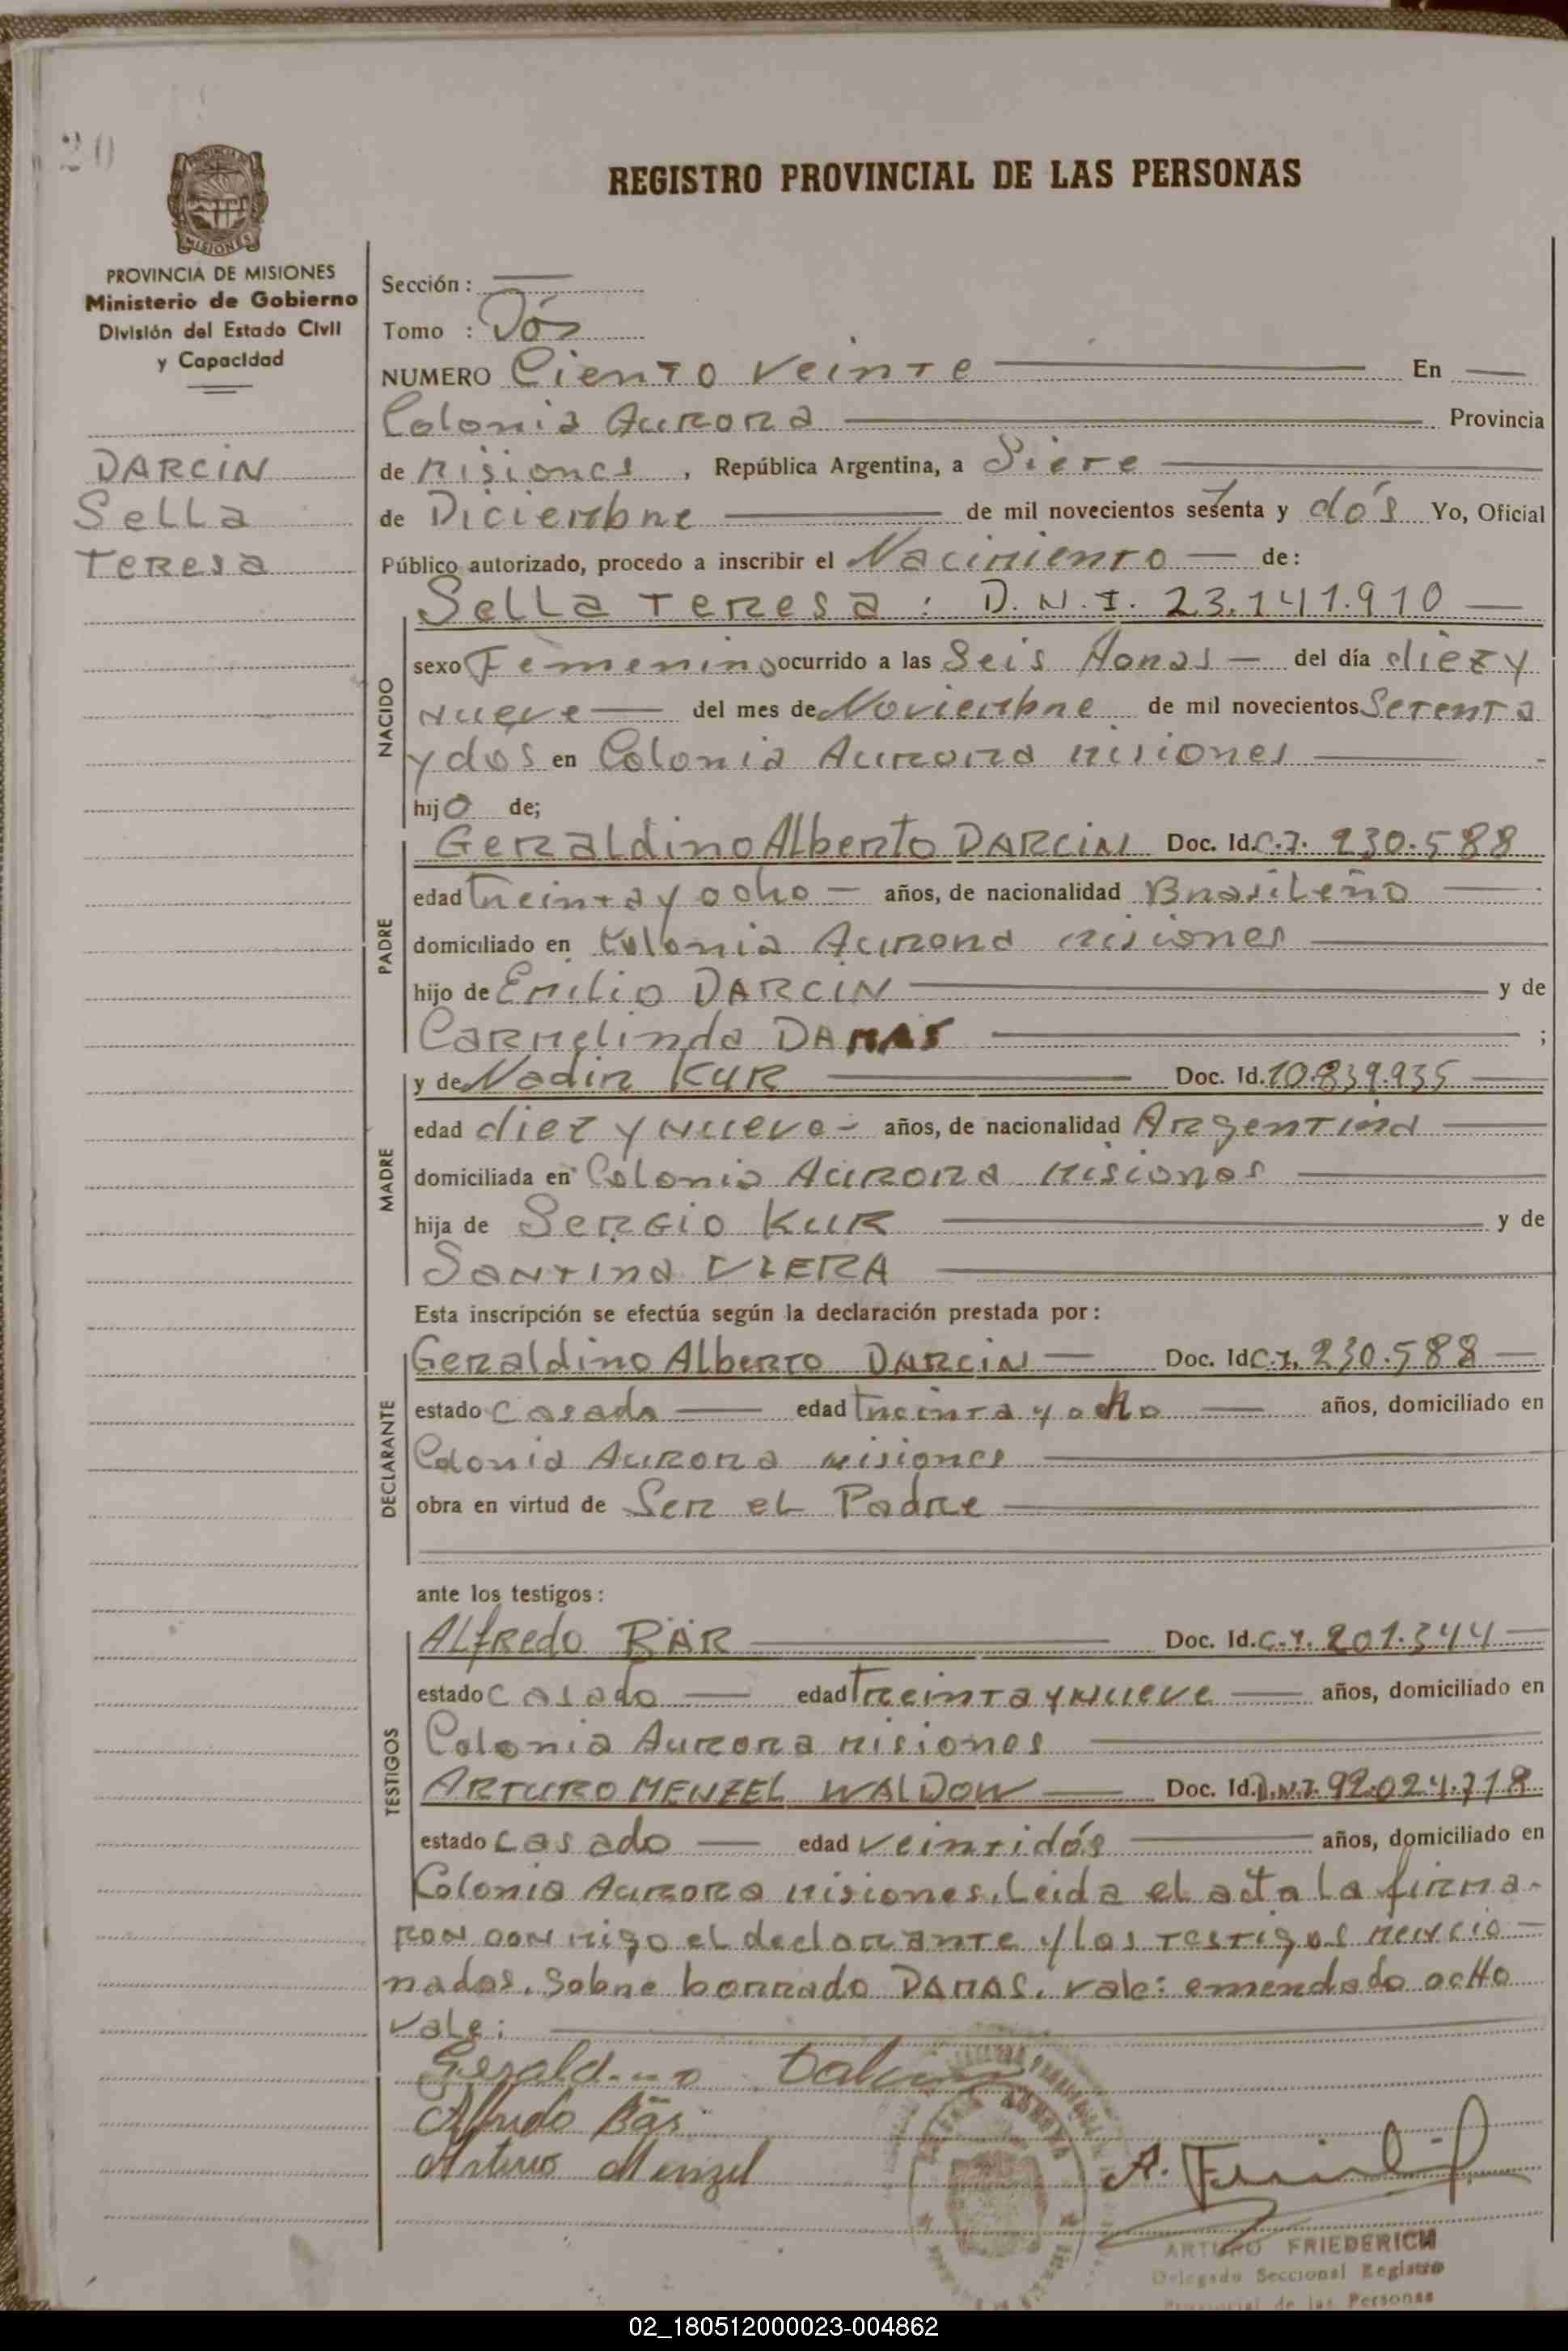 20
REGISTRO PROVINCIAL DE LAS PERSONAS
PROVINCIA DE MISIONES
Ministerio de Gobierno
División del Estado Civil
y Capacidad
DARCIN
Sella
Teresa
Sección :
Tomo : Dós
NUMERO Ciento veinte En
Colonia Aurora Provincia
de Misiones , República Argentina, a Siete
de Diciembre de mil novecientos setenta y dós Yo, Oficial
Público autorizado, procedo a inscribir el Nacimiento de:
NACIDO
Sella Teresa : D.N.I. 23.141.910
sexo Femenino ocurrido a las Seis Horas del día diez y
nueve del mes de Noviembre de mil novecientos Setenta
y dos en Colonia Aurora Misiones
hijo de;
PADRE
Geraldino Alberto DARCIN Doc. Id. C.I. 230.588
edad treinta y ocho años, de nacionalidad Brasileño
domiciliado en Colonia Aurora Misiones
hijo de Emilio DARCIN y de
Carmelinda DAMAS ;
MADRE
y de Nadir KUR Doc. Id. 10.839.935
edad diez y nueve años, de nacionalidad Argentina
domiciliada en Colonia Aurora Misiones
hija de Sergio KUR y de
Santina VIERA
Esta inscripción se efectúa según la declaración prestada por :
DECLARANTE
Geraldino Alberto DARCIN Doc. Id C.I. 230.588
estado Casado edad treinta y ocho años, domiciliado en
Colonia Aurora Misiones
obra en virtud de Ser el Padre
ante los testigos :
TESTIGOS
Alfredo BÄR Doc. Id. C.I. 201.344
estado casado edad treinta y nueve años, domiciliado en
Colonia Aurora Misiones
ARTURO MENZEL WALDOW Doc. Id. D.N.I. 92.024.718
estado casado edad veintidós años, domiciliado en
Colonia Aurora Misiones. Leida el acta la firma-
ron conmigo el declarante y los testigos mencio-
nados. Sobre borrado DAMAS. vale: emendado ocho
vale:
Geraldino Dalcin
Alfredo Bär
Arturo Menzel
A. Friederich
ARTURO FRIEDERICH
Delegado Seccional Registro
Provincial de las Personas
02_180512000023-004862